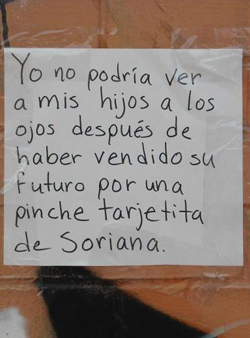 Yo no podría ver
a mis hijos a los
ojos después de
haber vendido su
futuro por una
pinche tarjetita
de Soriana.